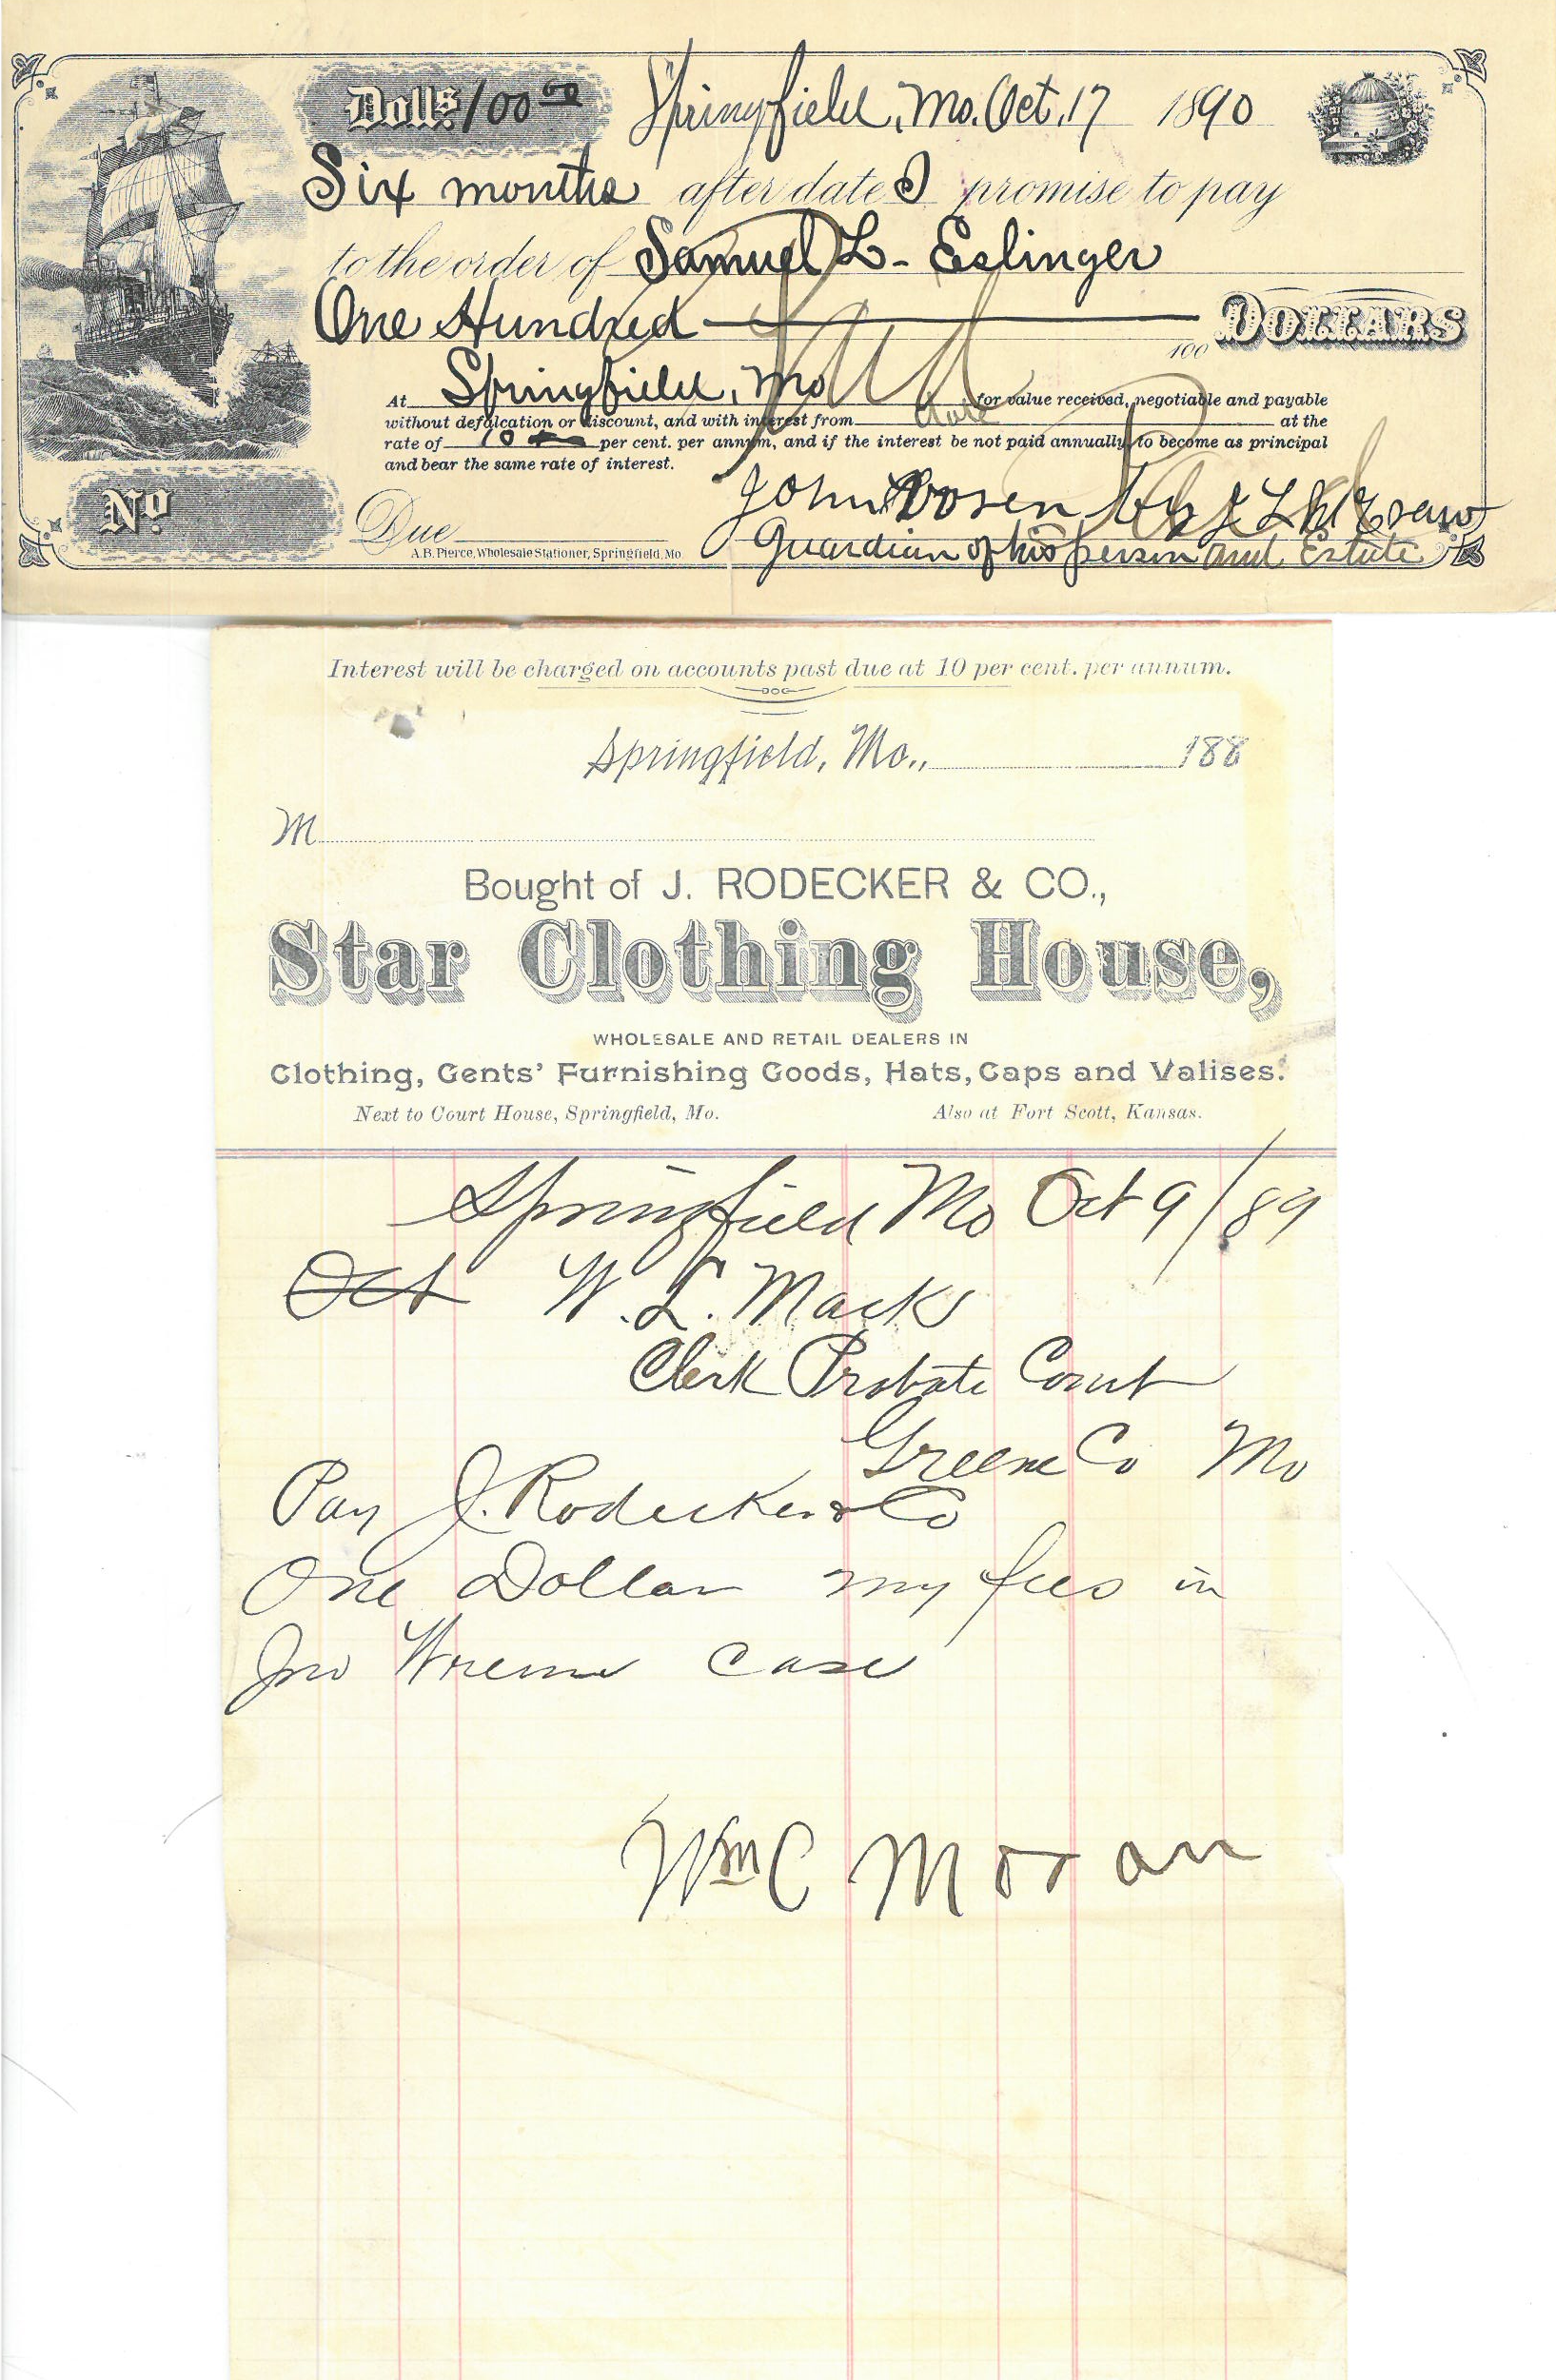 Dolls. 100 00 Springfield, Mo. Oct. 17 1890
Six months after date I promise to pay
to the order of Samuel L- Eslinger
One Hundred DOLLARS
100
At Springfield, Mo for value received, negotiable and payable
without defalcation or discount, and with interest from date at the
rate of 10 per cent. per annum, and if the interest be not paid annually, to become as principal
and bear the same rate of interest.
No
Due
John by J L
Guardian of his person and Estate
A.B. Pierce, Wholesale Stationer, Springfield, Mo.
Paid
Interest will be charged on accounts past due at 10 per cent. per annum.
Springfield, Mo., 188
M
Bought of J. RODECKER & CO.,
Star Clothing House,
WHOLESALE AND RETAIL DEALERS IN
Clothing, Gents' Furnishing Goods, Hats, Caps and Valises.
Next to Court House, Springfield, Mo. Also at Fort Scott, Kansas.
Springfield Mo Oct 9/89
Oct W. L. Mack
Clerk Probate Court
Greene Co Mo
Pay J. Rodecker & Co
One Dollar my fees in
Jno case
Wm C Moran